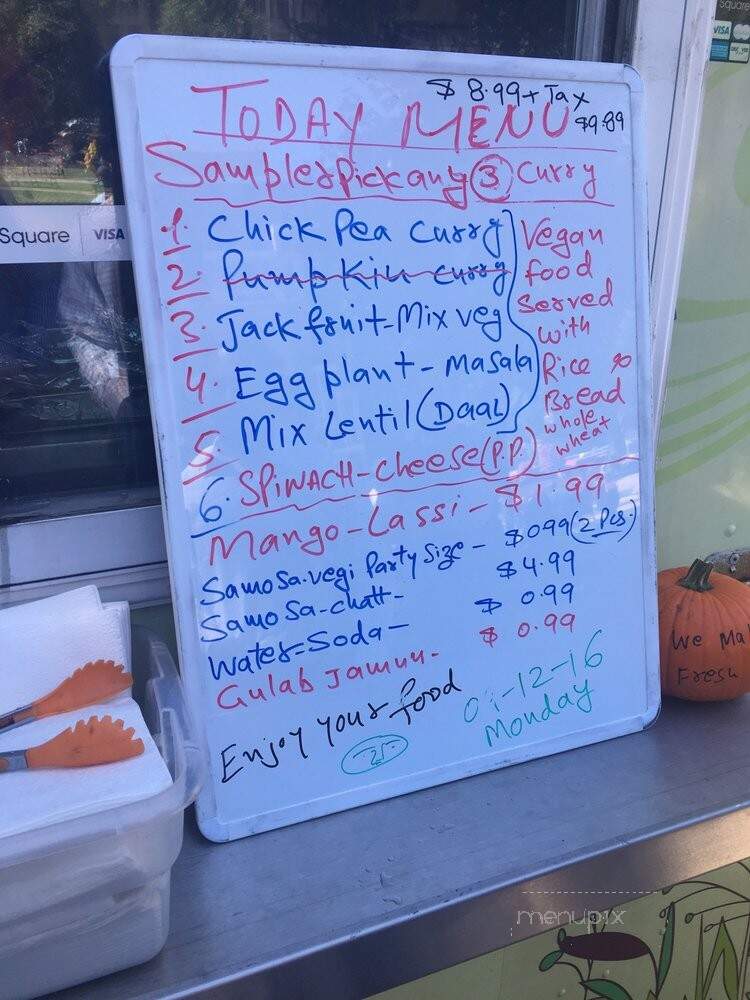 $ 8.99 + Tax
TODAY MENU $9.89
Sampler Pick any 3 Curry
1. Chick Pea curry
2. Pumpkin curry
3. Jack fruit-Mix veg
4. Egg plant-Masala
5. Mix Lentil (DAAL)
Vegan
food
Served
with
Rice or
Bread
whole
wheat
6. SPINACH-cheese (P.P.)
Mango-Lassi- $1.99
Samosa.vegi Party Size - $099 (2 Pcs.)
Samosa-chatt- $4.99
Water-Soda- $ 0.99
Gulab Jamun- $ 0.99
Enjoy your food
-12-16
Monday
Square VISA
Square
VISA
We Ma
Fresh
menupix